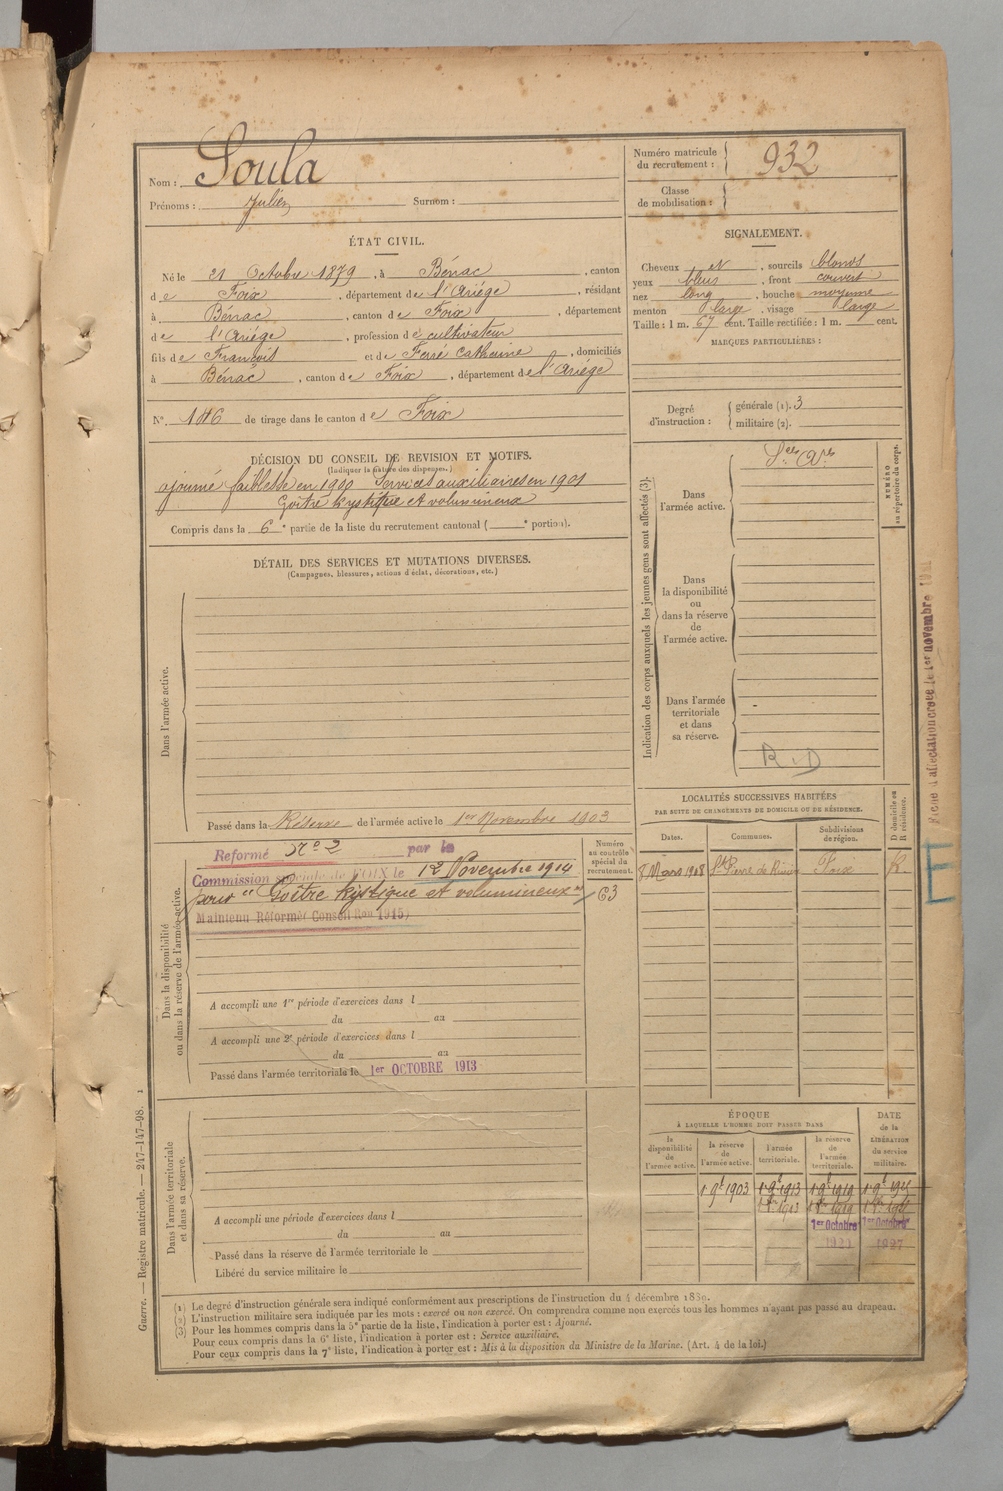 Nom : Soula
Prénoms : Julien Surnom :
Numéro matricule
du recrutement : 932
Classe
de mobilisation :
ÉTAT CIVIL.
Né le 21 Octobre 1879, à Bénac, canton
de Foix, département de l'Ariège, résidant
à Bénac, canton de Foix, département
de l'Ariège, profession de cultivateur
fils de François et de Ferré Catherine, domiciliés
à Bénac, canton de Foix, département de l'Ariège
N° 146 de tirage dans le canton de Foix
SIGNALEMENT.
Cheveux et, sourcils blonds
yeux bleus, front couvert
nez long, bouche moyenne
menton large, visage large
Taille : 1 m. 67 cent. Taille rectifiée : 1 m. cent.
MARQUES PARTICULIÈRES :
Degré
d'instruction :
générale (1). 3
militaire (2).
DÉCISION DU CONSEIL DE REVISION ET MOTIFS.
(Indiquer la nature des dispenses.)
ajourné faiblesse en 1900 Services auxiliaires en 1901
Goître kystique et volumineux
Compris dans la 6e partie de la liste du recrutement cantonal ( e portion).
DÉTAIL DES SERVICES ET MUTATIONS DIVERSES.
(Campagnes, blessures, actions d'éclat, décorations, etc.)
Dans l'armée active.
Passé dans la Réserve de l'armée active le 1er Novembre 1903
Dans la disponibilité
ou dans la réserve de l'armée active.
Réformé N° 2 par la
Commission spéciale de FOIX le 12 Novembre 1914
pour "Goître kystique et volumineux"
Maintenu Réformé (Conseil Ron 1915)
Numéro
au contrôle
spécial du
recrutement.
63
A accompli une 1re période d'exercices dans l
du au
A accompli une 2e période d'exercices dans l
du au
Passé dans l'armée territoriale le 1er OCTOBRE 1913
Dans l'armée territoriale
et dans sa réserve.
A accompli une période d'exercices dans l
du au
Passé dans la réserve de l'armée territoriale le
Libéré du service militaire le
Indication des corps auxquels les jeunes gens sont affectés (3).
NUMÉRO
au répertoire du corps.
Dans
l'armée active.
Sces Ares
Dans
la disponibilité
ou
dans la réserve
de
l'armée active.
Dans l'armée
territoriale
et dans
sa réserve.
R.D
LOCALITÉS SUCCESSIVES HABITÉES
PAR SUITE DE CHANGEMENTS DE DOMICILE OU DE RÉSIDENCE.
Dates. Communes. Subdivisions
de région.
D domicile ou
R résidence.
8 Mars 1908 St Pierre de Rivière Foix R.
ÉPOQUE
À LAQUELLE L'HOMME DOIT PASSER DANS
la
disponibilité
de
l'armée active.
la réserve
de
l'armée active.
l'armée
territoriale.
la réserve
de
l'armée
territoriale.
DATE
de la
LIBÉRATION
du service
militaire.
1 9bre 1903 1 9bre 1913 1 9bre 1919
1er Octobre 1er Octobre
1920 1927
Fiche d'affectation créée le 1er novembre
E
Guerre. — Registre matricule. — 247-147-98. 1
(1) Le degré d'instruction générale sera indiqué conformément aux prescriptions de l'instruction du 4 décembre 1889.
(2) L'instruction militaire sera indiquée par les mots : exercé ou non exercé. On comprendra comme non exercés tous les hommes n'ayant pas passé au drapeau.
(3) Pour les hommes compris dans la 5e partie de la liste, l'indication à porter est : Ajourné.
Pour ceux compris dans la 6e liste, l'indication à porter est : Service auxiliaire.
Pour ceux compris dans la 7e liste, l'indication à porter est : Mis à la disposition du Ministre de la Marine. (Art. 4 de la loi.)